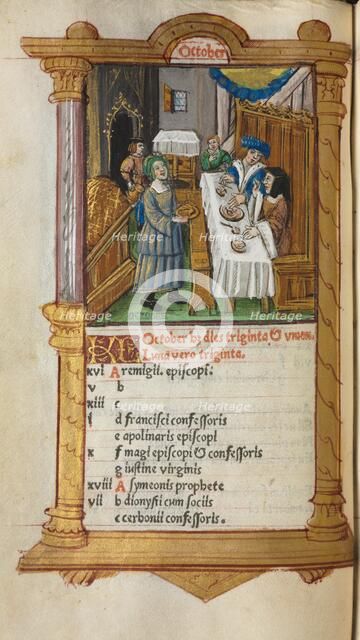 October
October hz dies triginta & vnum.
Luna vero triginta.
xvi A remigii. episcopi.
v b
xiii c
ii d francisci confessoris
e apolinaris episcopi
x f magi episcopi & confessoris
g iustine virginis
xviii A symeonis prophete
vii b dionysii cum sociis
c cerbonii confessoris.
Heritage
Heritage
Heritage
Heritage
Heritage
Heritage